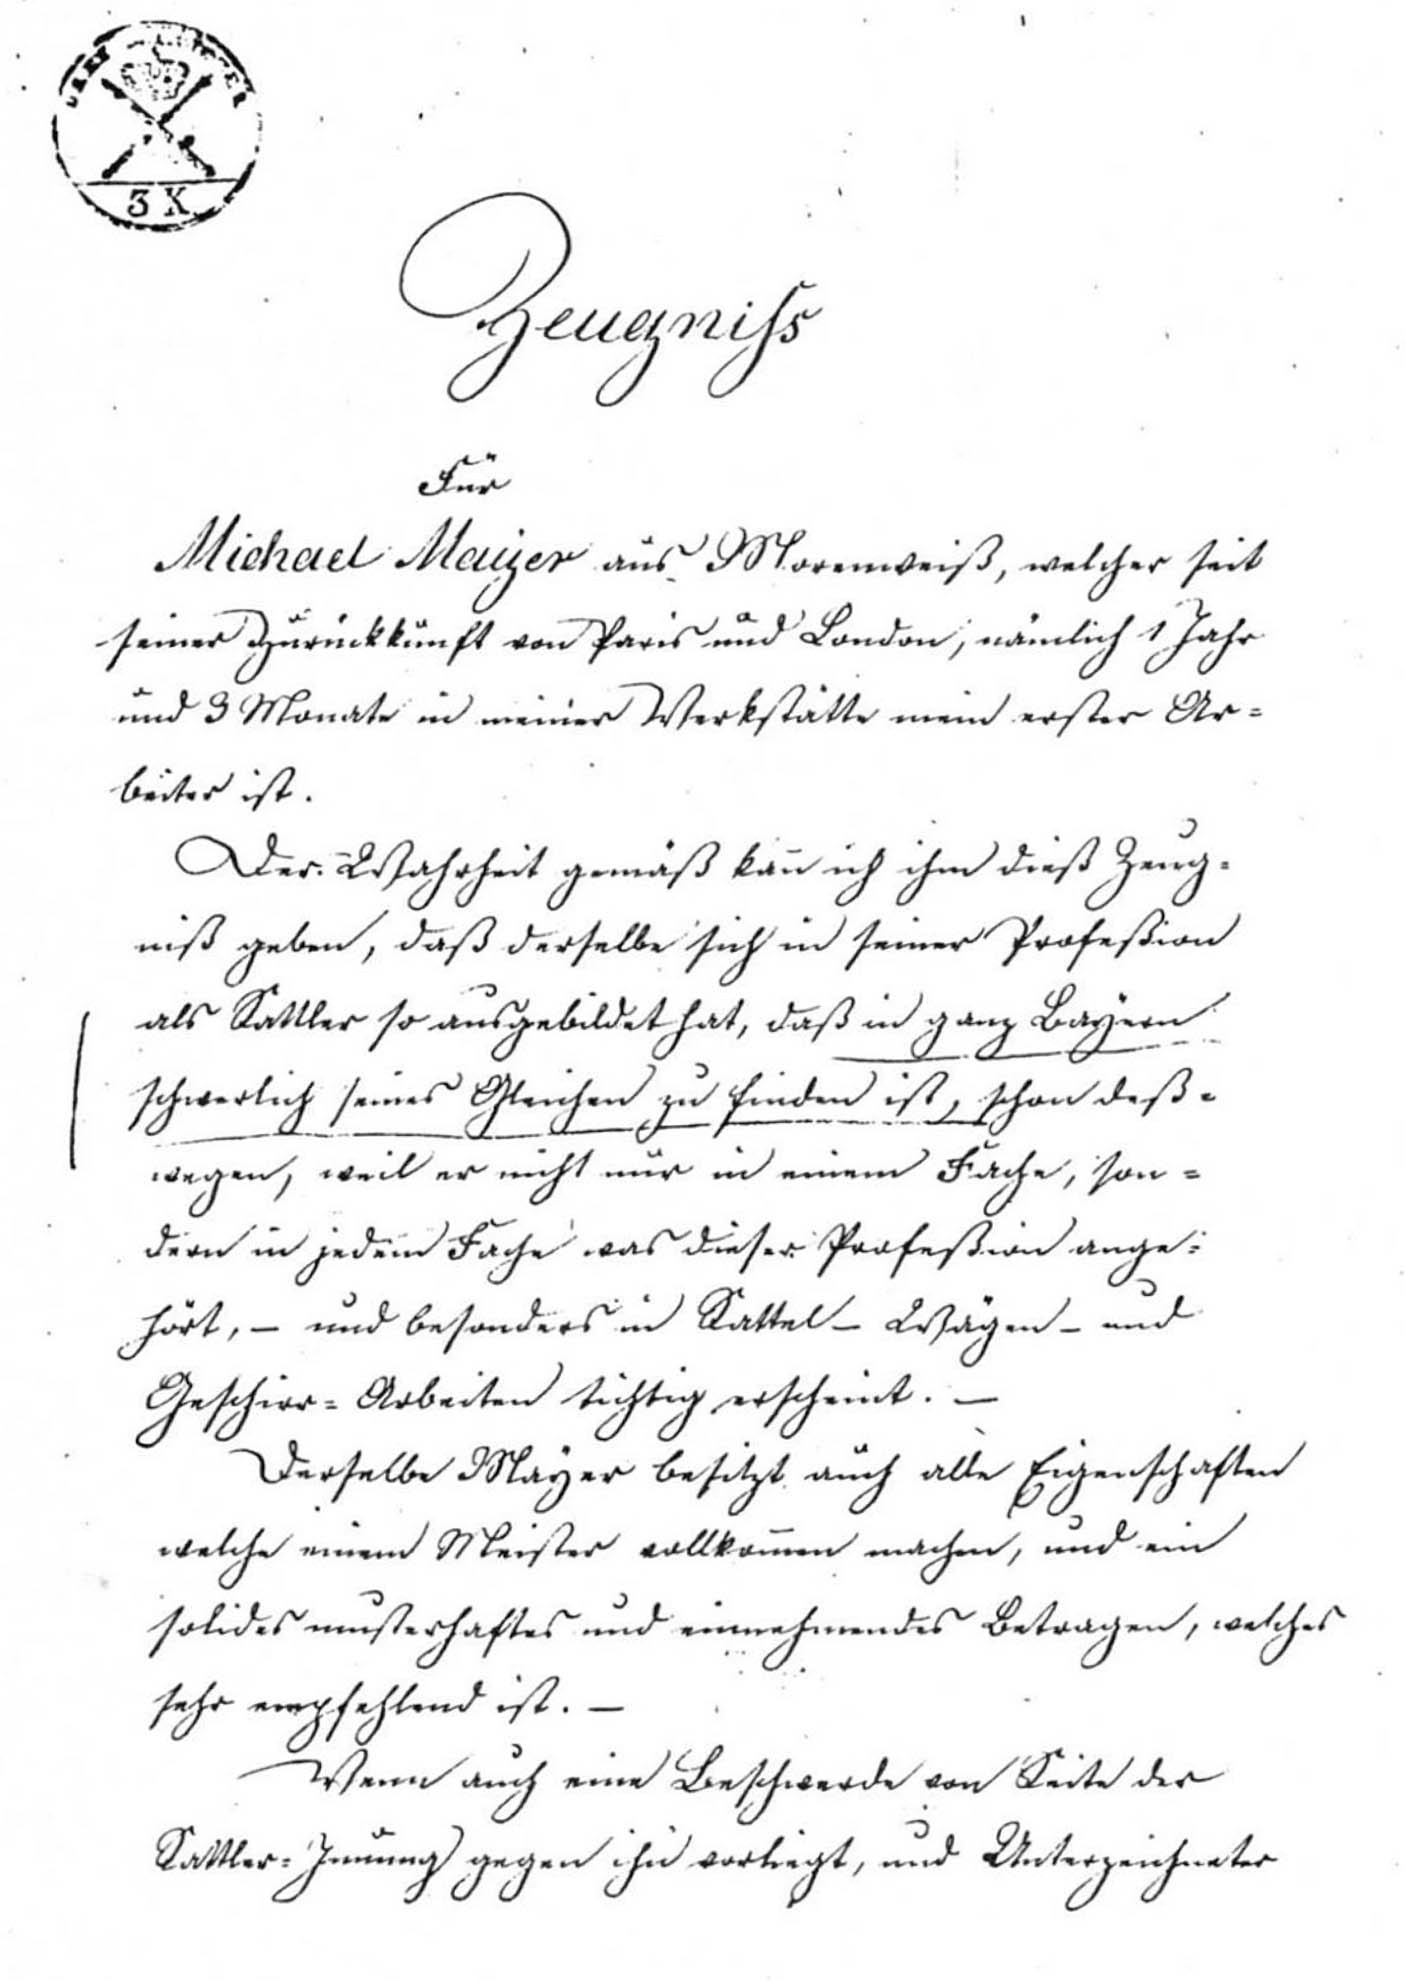 3 K
Zeugniss
Für
Michael Mayer aus Morenweiß, welcher seit
seiner Zurückkunft von Paris und London, nämlich 1 Jahr
und 3 Monate in meiner Werkstätte mein erster Ar=
beiter ist.
Der Wahrheit gemäß kan̄ ich ihm dieß Zeug=
niß geben, daß derselbe sich in seiner Profeßion
als Sattler so ausgebildet hat, daß in ganz Bayern
schwerlich seines Gleichen zu finden ist, schon deß=
wegen, weil er nicht nur in einem Fache, son=
dern in jedem Fache was dieser Profeßion ange=
hört, – und besonders in Sattel – Wägen – und
Geschirr= Arbeiten tüchtig erscheint. —
Derselbe Mayer besitzt auch alle Eigenschaften
welche einem Meister vollkom̄en machen, und ein
solides musterhaftes und einnehmendes Betragen, welches
sehr empfehlend ist. —
Wenn auch eine Beschwerde von Seite der
Sattler= Innung gegen ihn vorliegt, und Unterzeichneter